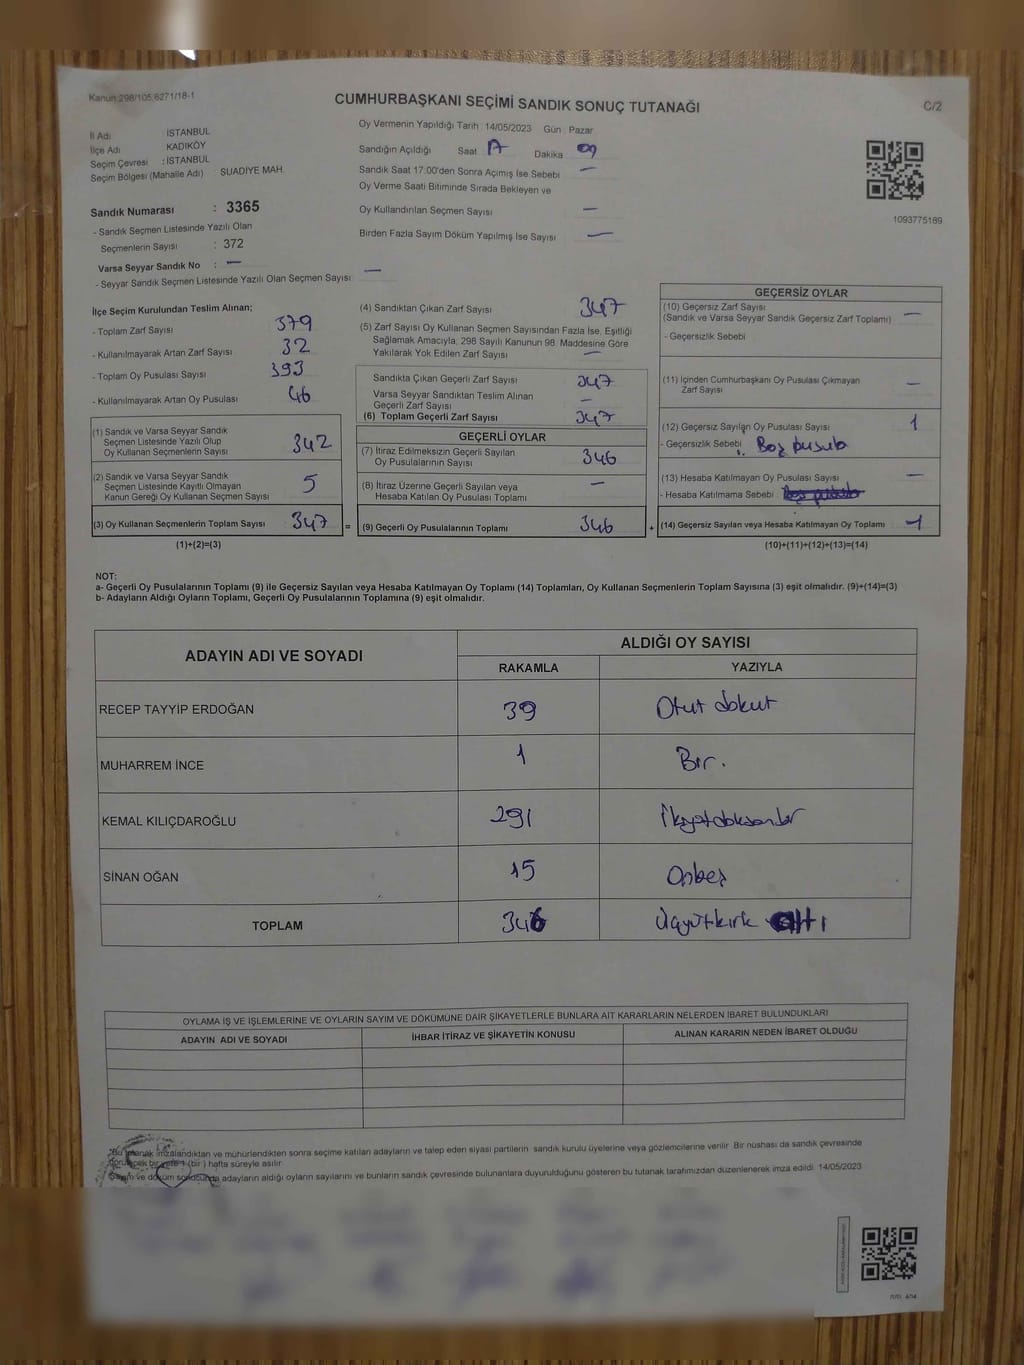 Kanun:298/105,6271/18-1
CUMHURBAŞKANI SEÇİMİ SANDIK SONUÇ TUTANAĞI
C/2
İl Adı : İSTANBUL
İlçe Adı : KADIKÖY
Seçim Çevresi : İSTANBUL
Seçim Bölgesi (Mahalle Adı) SUADİYE MAH.
Sandık Numarası : 3365
- Sandık Seçmen Listesinde Yazılı Olan
Seçmenlerin Sayısı : 372
Varsa Seyyar Sandık No : —
- Seyyar Sandık Seçmen Listesinde Yazılı Olan Seçmen Sayısı: —
Oy Vermenin Yapıldığı Tarih 14/05/2023 Gün Pazar
Sandığın Açıldığı Saat 17 Dakika 09
Sandık Saat 17.00'den Sonra Açımış İse Sebebi —
Oy Verme Saati Bitiminde Sırada Bekleyen ve
Oy Kullandırılan Seçmen Sayısı —
Birden Fazla Sayım Döküm Yapılmış İse Sayısı —
1093775189
İlçe Seçim Kurulundan Teslim Alınan;
- Toplam Zarf Sayısı 379
- Kullanılmayarak Artan Zarf Sayısı 32
- Toplam Oy Pusulası Sayısı 393
- Kullanılmayarak Artan Oy Pusulası 46
(1) Sandık ve Varsa Seyyar Sandık
Seçmen Listesinde Yazılı Olup
Oy Kullanan Seçmenlerin Sayısı 342
(2) Sandık ve Varsa Seyyar Sandık
Seçmen Listesinde Kayıtlı Olmayan
Kanun Gereği Oy Kullanan Seçmen Sayısı 5
(3) Oy Kullanan Seçmenlerin Toplam Sayısı 347 =
(1)+(2)=(3)
(4) Sandıktan Çıkan Zarf Sayısı 347
(5) Zarf Sayısı Oy Kullanan Seçmen Sayısından Fazla İse, Eşitliği
Sağlamak Amacıyla, 298 Sayılı Kanunun 98. Maddesine Göre
Yakılarak Yok Edilen Zarf Sayısı —
Sandıkta Çıkan Geçerli Zarf Sayısı 347
Varsa Seyyar Sandıktan Teslim Alınan
Geçerli Zarf Sayısı —
(6) Toplam Geçerli Zarf Sayısı 347
GEÇERLİ OYLAR
(7) İtiraz Edilmeksizin Geçerli Sayılan
Oy Pusulalarının Sayısı 346
(8) İtiraz Üzerine Geçerli Sayılan veya
Hesaba Katılan Oy Pusulası Toplamı —
(9) Geçerli Oy Pusulalarının Toplamı 346 +
GEÇERSİZ OYLAR
(10) Geçersiz Zarf Sayısı
(Sandık ve Varsa Seyyar Sandık Geçersiz Zarf Toplamı) —
- Geçersizlik Sebebi
(11) İçinden Cumhurbaşkanı Oy Pusulası Çıkmayan
Zarf Sayısı —
(12) Geçersiz Sayılan Oy Pusulası Sayısı 1
- Geçersizlik Sebebi Boş pusula
(13) Hesaba Katılmayan Oy Pusulası Sayısı —
- Hesaba Katılmama Sebebi
(14) Geçersiz Sayılan veya Hesaba Katılmayan Oy Toplamı 1
(10)+(11)+(12)+(13)=(14)
NOT:
a- Geçerli Oy Pusulalarının Toplamı (9) ile Geçersiz Sayılan veya Hesaba Katılmayan Oy Toplamı (14) Toplamları, Oy Kullanan Seçmenlerin Toplam Sayısına (3) eşit olmalıdır. (9)+(14)=(3)
b- Adayların Aldığı Oyların Toplamı, Geçerli Oy Pusulalarının Toplamına (9) eşit olmalıdır.
ADAYIN ADI VE SOYADI
ALDIĞI OY SAYISI
RAKAMLA YAZIYLA
RECEP TAYYİP ERDOĞAN 39 Otuz dokuz
MUHARREM İNCE 1 Bir.
KEMAL KILIÇDAROĞLU 291 ikiyüzdoksanbir
SİNAN OĞAN 15 Onbeş
TOPLAM 346 Üçyüzkırk altı
OYLAMA İŞ VE İŞLEMLERİNE VE OYLARIN SAYIM VE DÖKÜMÜNE DAİR ŞİKAYETLERLE BUNLARA AİT KARARLARIN NELERDEN İBARET BULUNDUKLARI
ADAYIN ADI VE SOYADI İHBAR İTİRAZ VE ŞİKAYETİN KONUSU ALINAN KARARIN NEDEN İBARET OLDUĞU
Bu tutanak imzalandıktan ve mühürlendikten sonra seçime katılan adayların ve talep eden siyasi partilerin sandık kurulu üyelerine veya gözlemcilerine verilir. Bir nüshası da sandık çevresinde
görülecek bir yere 1 (bir) hafta süreyle asılır.
Sayım ve döküm sonucunda adayların aldığı oyların sayılarını ve bunların sandık çevresinde bulunanlara duyurulduğunu gösteren bu tutanak tarafımızdan düzenlenerek imza edildi. 14/05/2023